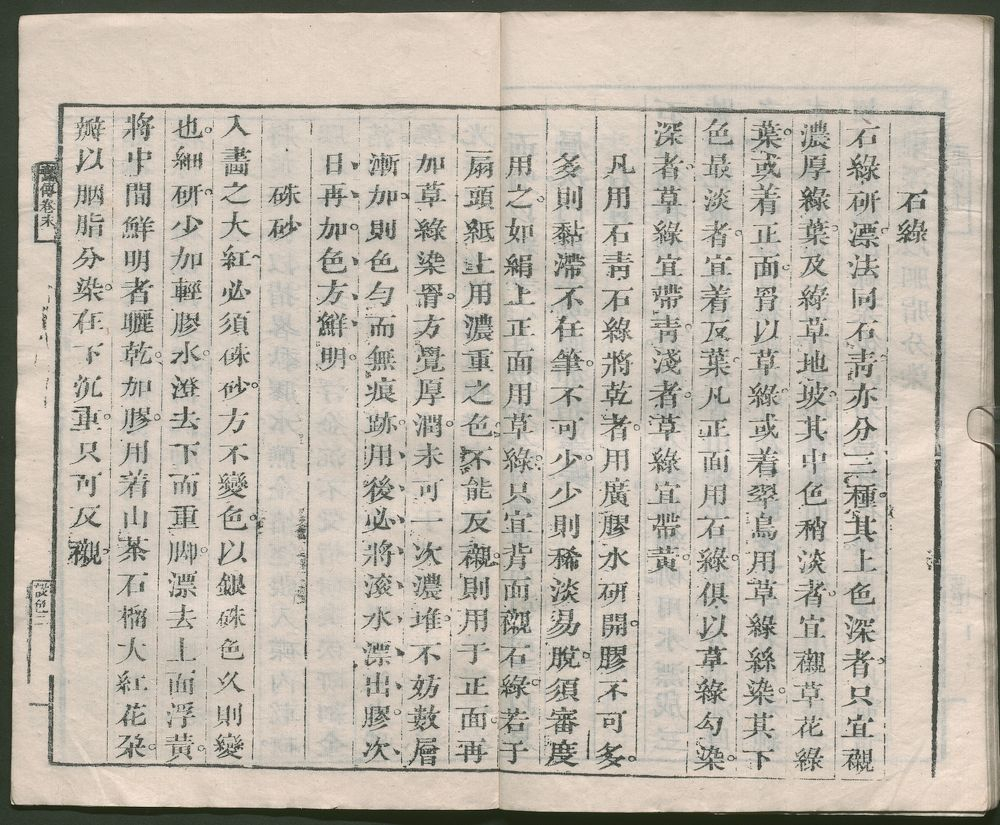 石綠
石綠研漂法同石靑亦分三種其上色深者只宜襯
濃厚綠葉及綠草地坡其中色稍淡者宜襯草花綠
葉或着正面罥以草綠或着翠鳥用草綠絲染其下
色最淡者宜着反葉凡正面用石綠俱以草綠勾染
深者草綠宜帶靑淺者草綠宜帶黃
凡用石靑石綠將乾者用廣膠水研開膠不可多
多則黏滯不在筆不可少少則稀淡易脫須審度
用之如絹上正面用草綠只宜背面襯石綠若于
扇頭紙上用濃重之色不能反襯則用于正面再
加草綠染罥方覺厚潤未可一次濃堆不妨數層
漸加則色勻而無痕跡用後必將滾水漂出膠次
日再加色方鮮明
硃砂
入畵之大紅必須硃砂方不變色以銀硃色久則變
也細研少加輕膠水澄去下面重脚漂去上面浮黃
將中間鮮明者曬乾加膠用着山茶石榴大紅花朶
瓣以胭脂分染在下沉重只可反襯
傳卷末
設色